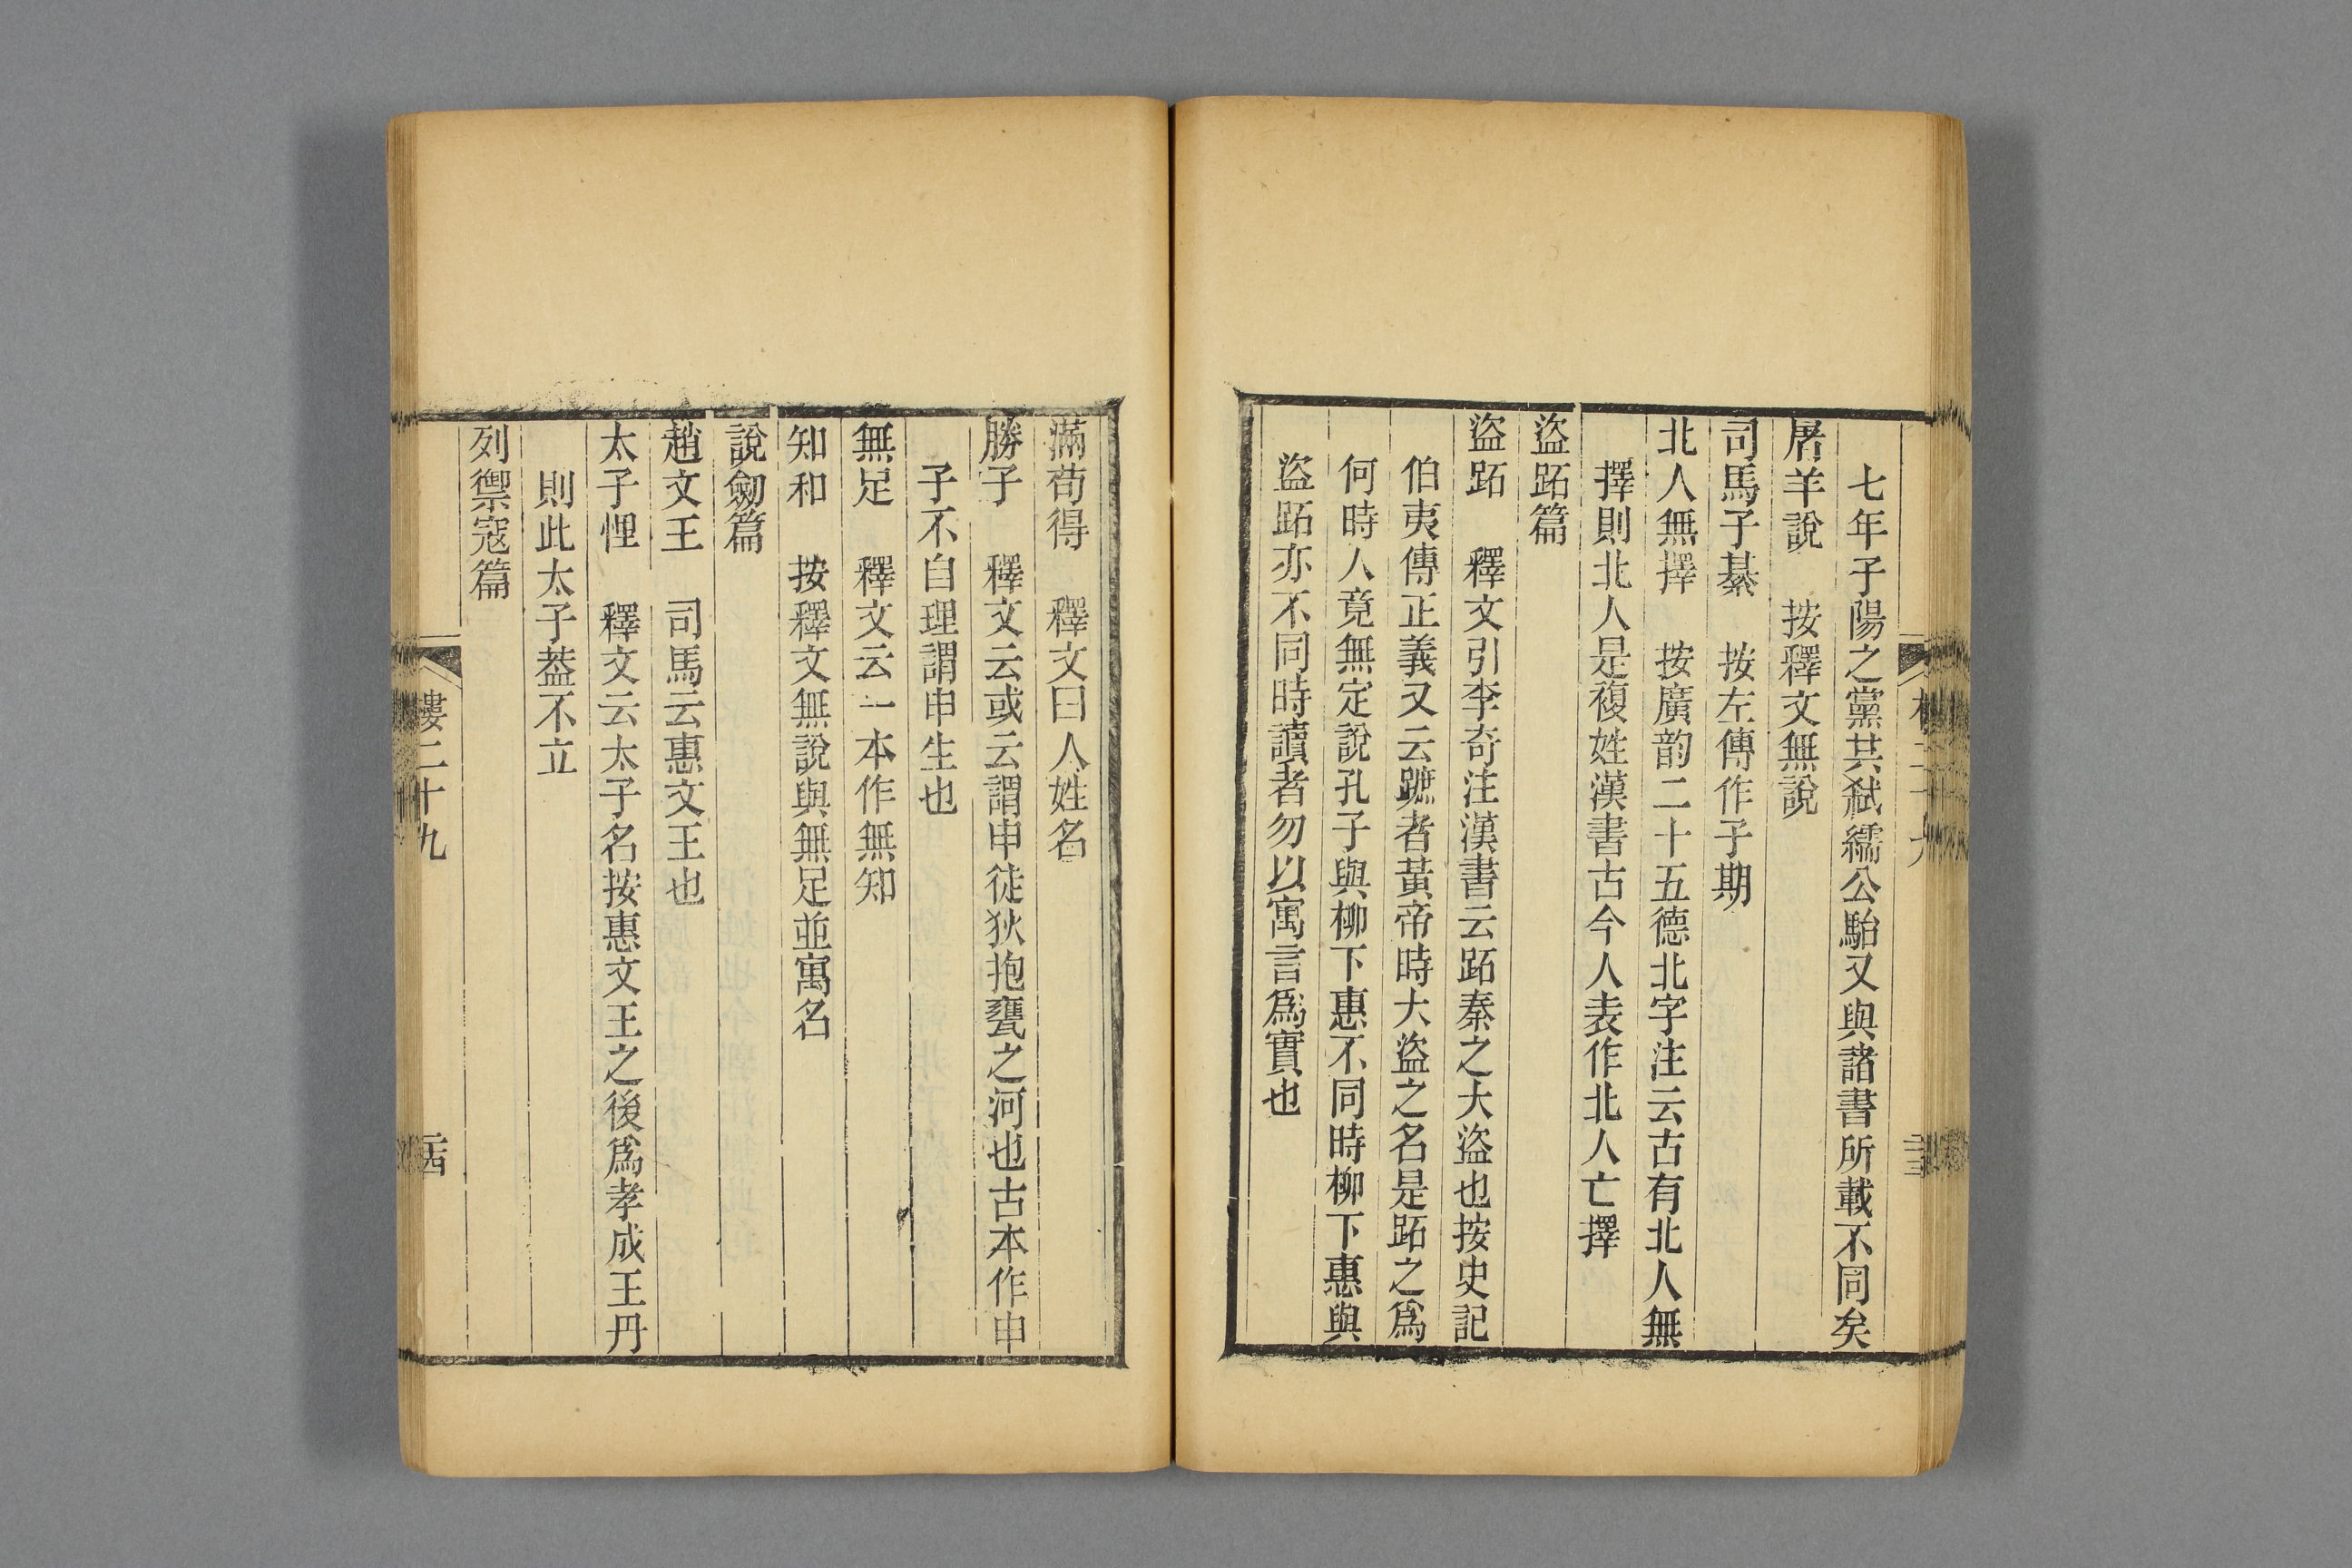 七年子陽之黨共弒繻公駘又與諸書所載不同矣
屠羊說　按釋文無說
司馬子綦　按左傳作子期
北人無擇　按廣韵二十五德北字注云古有北人無
擇則北人是複姓漢書古今人表作北人亡擇
盜跖篇
盜跖　釋文引李奇注漢書云跖秦之大盜也按史記
伯夷傳正義又云蹠者黃帝時大盜之名是跖之爲
何時人竟無定說孔子與柳下惠不同時柳下惠與
盜跖亦不同時讀者勿以寓言爲實也
滿苟得　釋文曰人姓名
勝子　釋文云或云謂申徒狄抱甕之河也古本作申
子不自理謂申生也
無足　釋文云一本作無知
知和　按釋文無說與無足並寓名
說劒篇
趙文王　司馬云惠文王也
太子悝　釋文云太子名按惠文王之後爲孝成王丹
則此太子葢不立
列禦寇篇
樓二十九